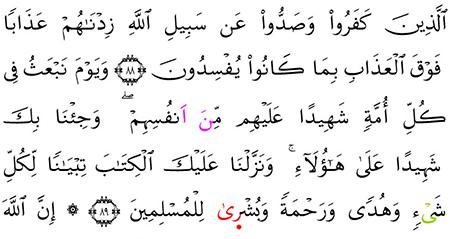 الَّذِينَ كَفَرُواْ وَصَدُّواْ عَن سَبِيلِ اللَّهِ زِدْنَٰهُمْ عَذَابًا
فَوْقَ اَلْعَذَابِ بِمَا كَانُواْ يُفْسِدُونَ ٨٨ وَيَوْمَ نَبْعَثُ فِى
كُلِّ أُمَّةٍ شَهِيدًا عَلَيْهِم مِّنَ اَنفُسِهِمْ ۖ وَجِئْنَا بِكَ
شَهِيدًا عَلَىٰ هَٰٓؤُلَآءِ ۚ وَنَزَّلْنَا عَلَيْكَ اَلْكِتَٰبَ تِبْيَٰنًا لِّكُلِّ
شَىْءٍ وَهُدًى وَرَحْمَةً وَبُشْرِىٰ لِلْمُسْلِمِينَ ٨٩ ۞ إِنَّ اَللَّهَ